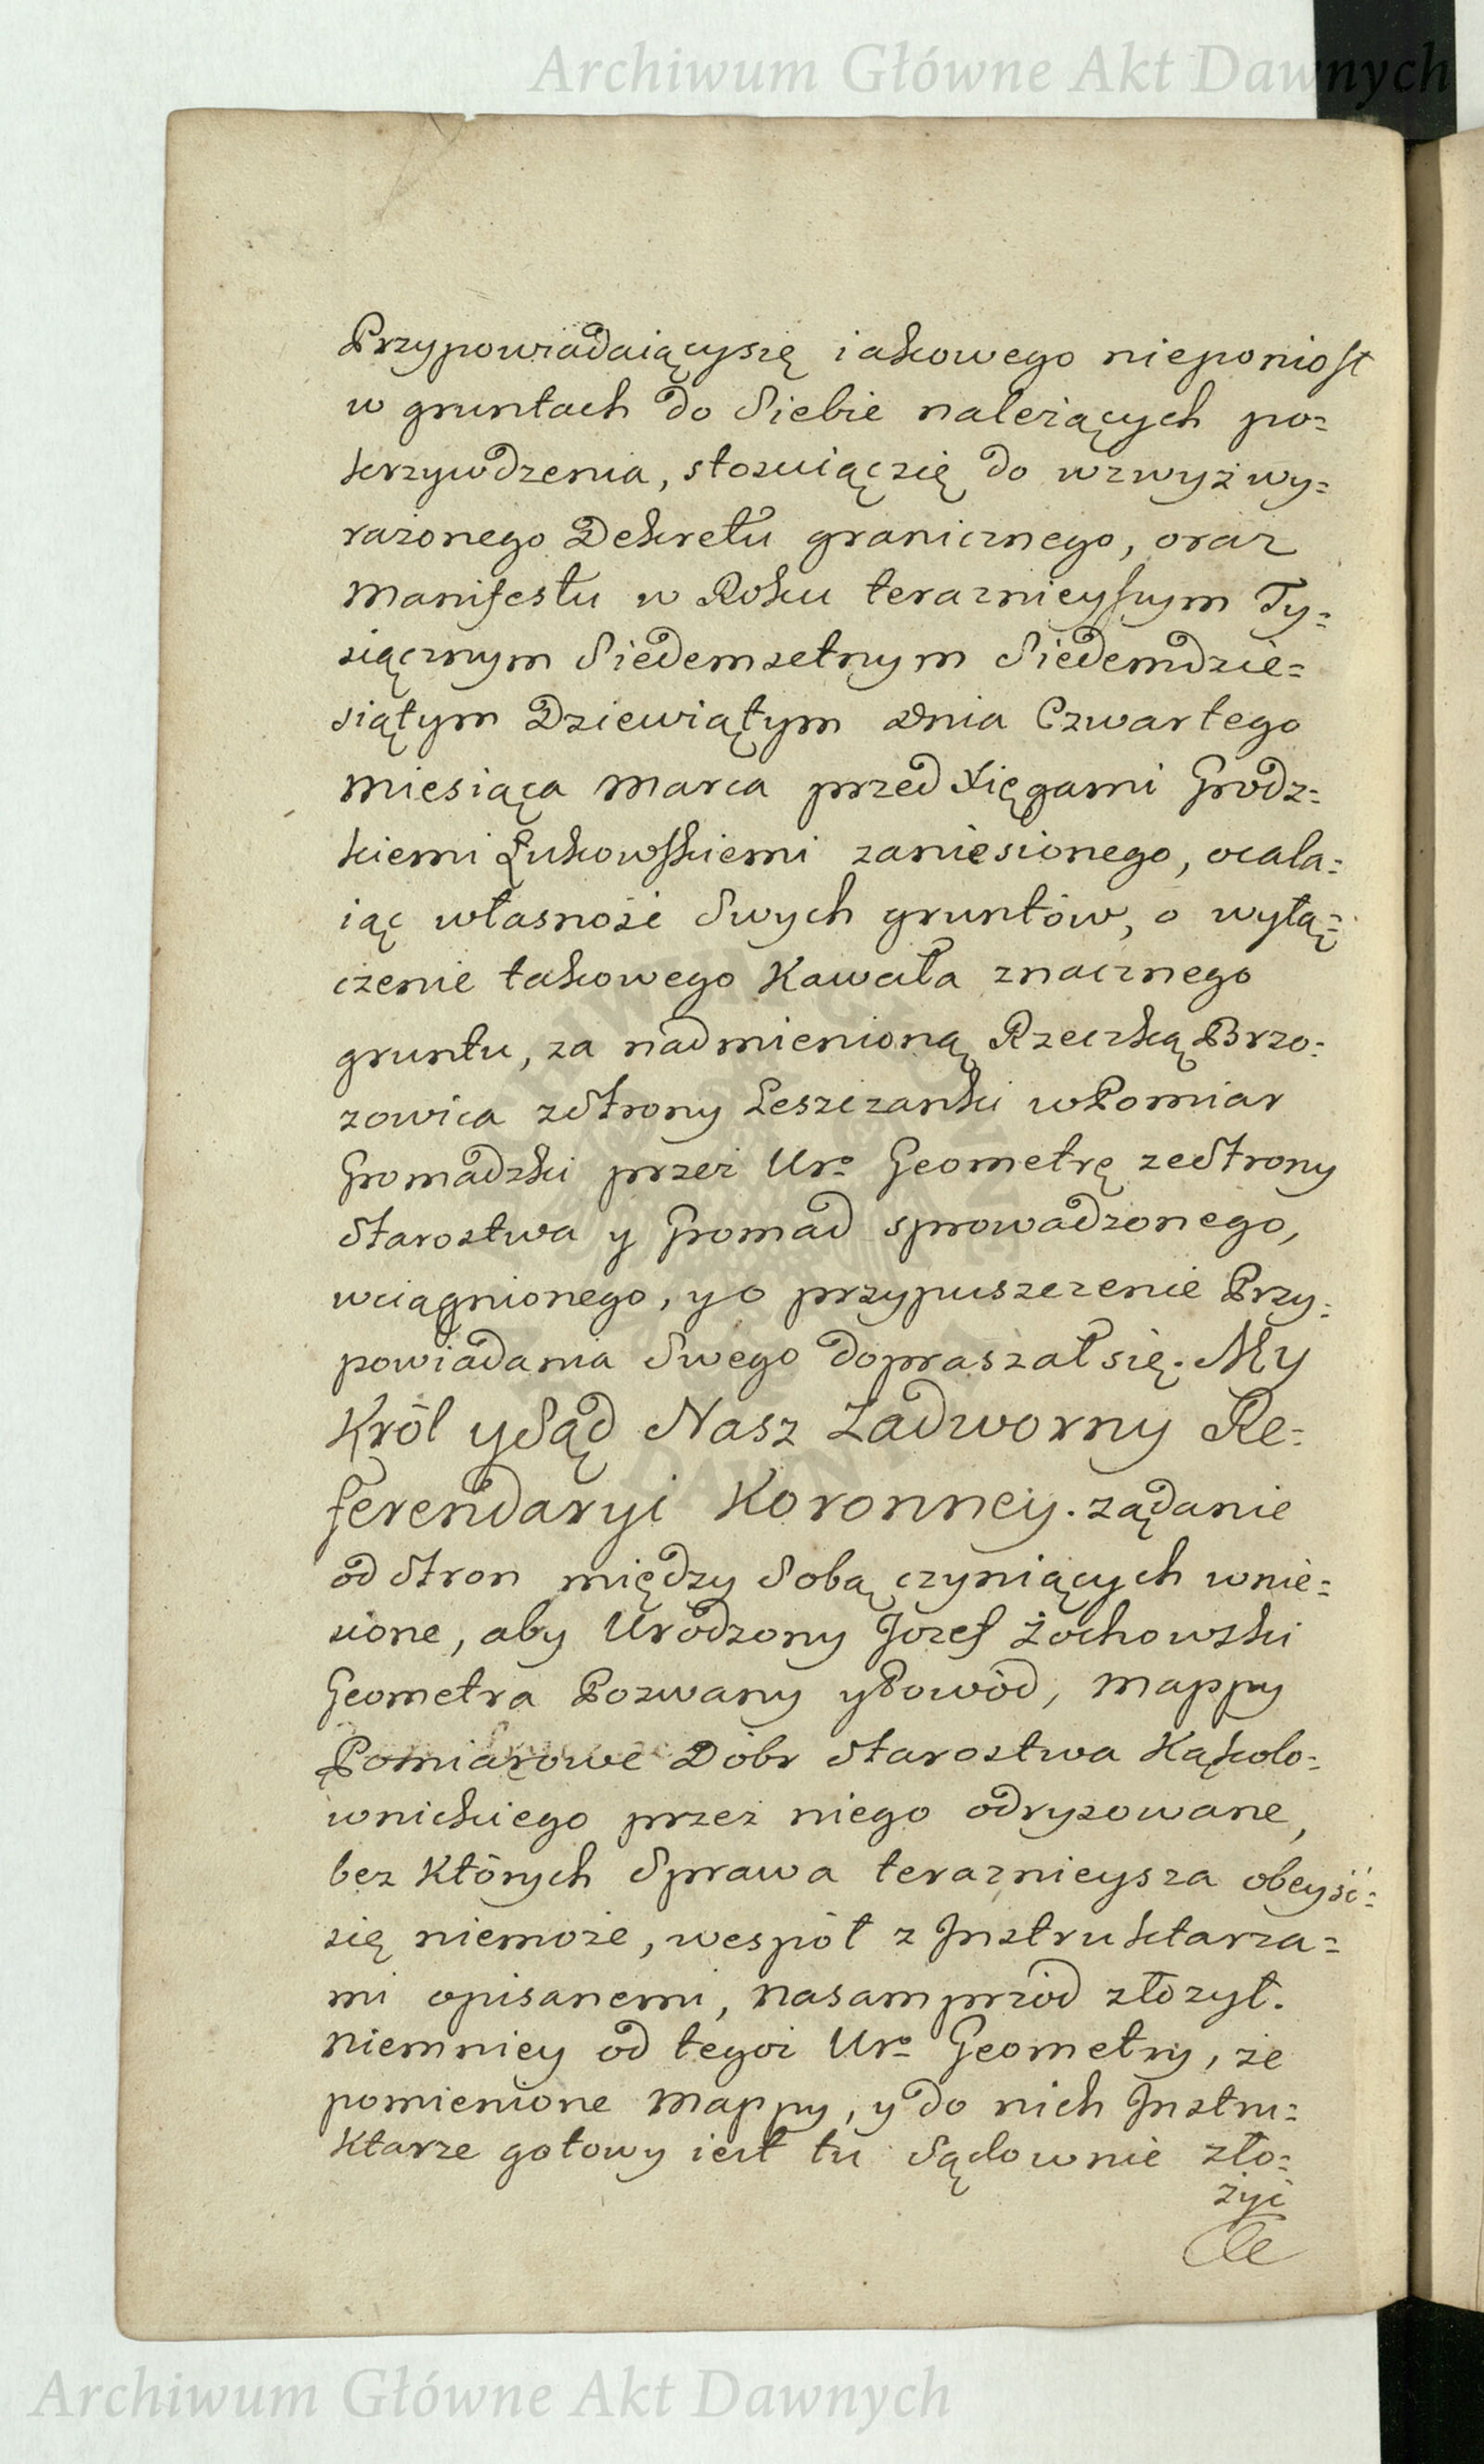 Archiwum Główne Akt Dawnych
Przypowiadaiącysię iakowego nieponiosł
w gruntach do Siebie należących po=
krzywdzenia, stosuiącsię do wzwyż wy=
rażonego Dekretu granicznego, oraz
Manifestu w Roku teraznieyszym Ty=
siącznym Siedemsetnym Siedemdzie=
siątym Dziewiątym Dnia Czwartego
Miesiąca Marca przed Xięgami Grodz=
kiemi Łukowskiemi zaniesionego, ocala=
iąc własność Swych gruntów, o wyłą=
czenie takowego Kawała znacznego
gruntu, za nadmienioną Rzeczką Brzo=
zowica zStrony Leszczanki wPomiar
Gromadzki przez Uro Geometrę zeStrony
Starostwa y Gromad sprowadzonego,
wciągnionego, y o przypuszczenie Przy=
powiadania Swego dopraszał się. My
Król ySąd Nasz Zadworny Re=
ferendaryi Koronney. żądanie
od Stron między Sobą czyniących wnie=
sione, aby Urodzony Jozef Żochowski
Geometra Pozwany yPowód, Mappy
Pomiarowe Dóbr Starostwa Kąkolo=
wnickiego przez niego odrysowane,
bez Których Sprawa teraznieysza obeyść=
się niemoże, wespół z Instruktarza=
mi opisanemi, nasamprzód złożył.
Niemniey od tegoż Uro Geometry, że
pomienione Mappy, y do nich Instru=
Ktarze gotowy iest tu Sądownie zło=
żyć
Archiwum Główne Akt Dawnych